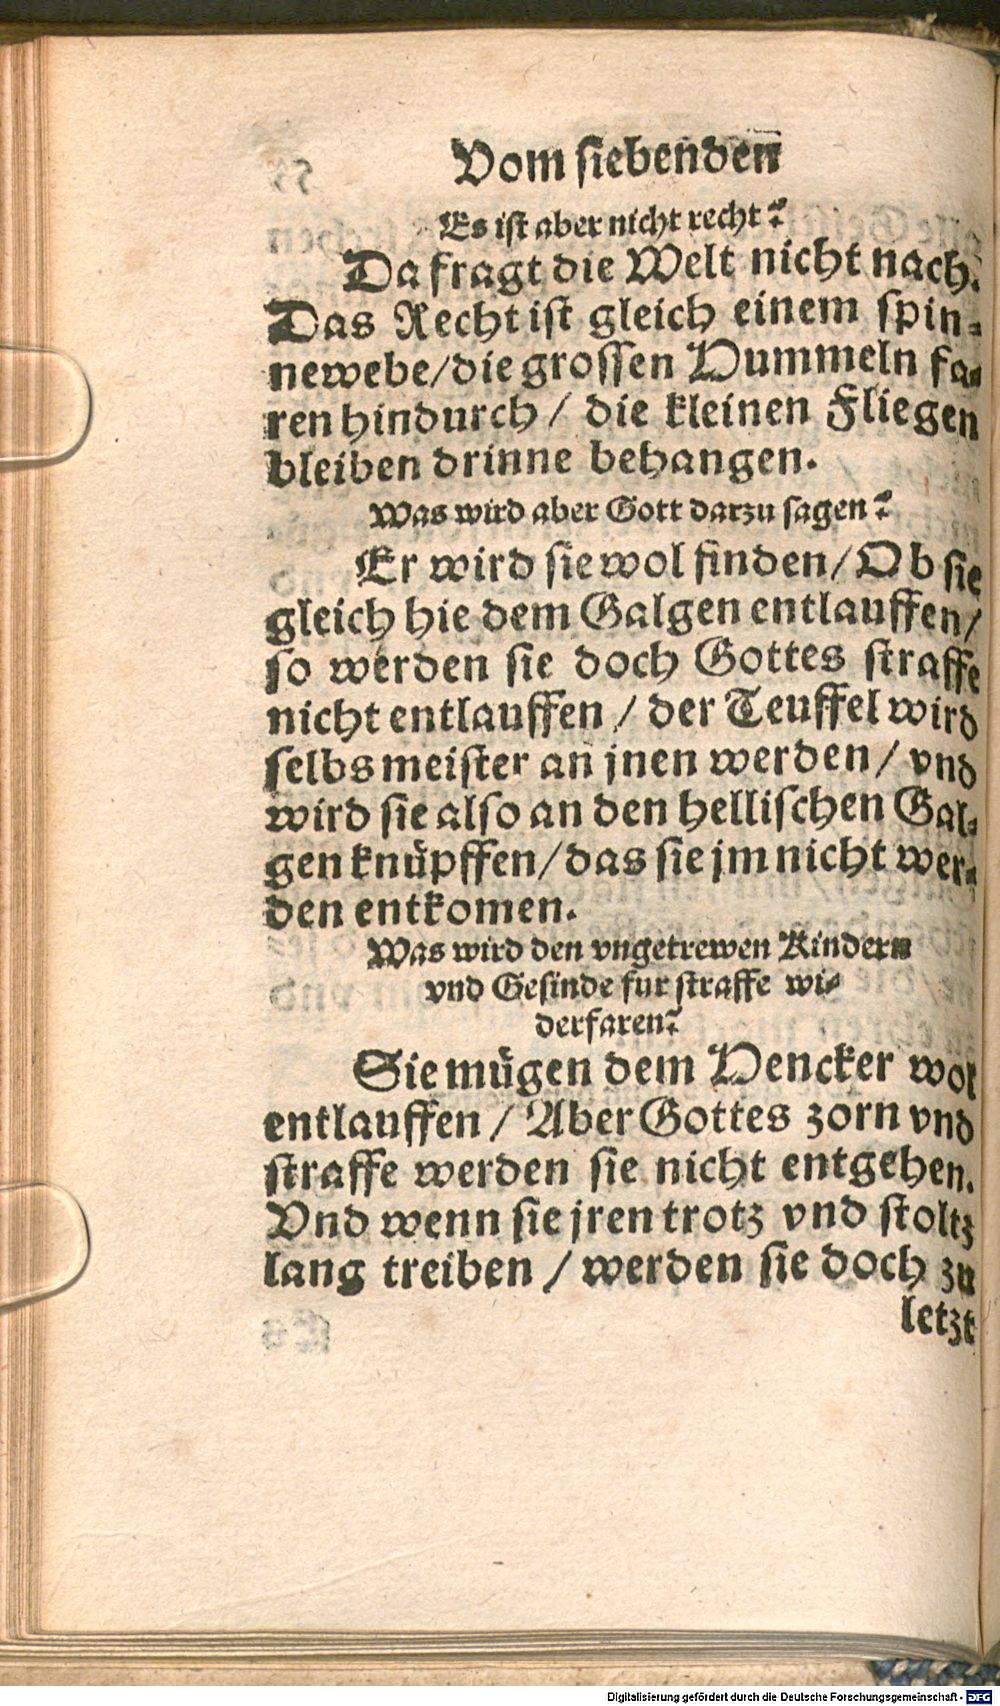 Vom siebenden
Es ist aber nicht recht?
Da fragt die Welt nicht nach.
Das Recht ist gleich einem spin-
newebe/die grossen Hummeln fa-
ren hindurch / die kleinen Fliegen
bleiben drinne behangen.
Was wird aber Gott darzu sagen?
Er wird sie wol finden/Ob sie
gleich hie dem Galgen entlauffen/
so werden sie doch Gottes straffe
nicht entlauffen / der Teuffel wird
selbs meister an jnen werden / vnd
wird sie also an den hellischen Gal-
gen knüpffen/das sie jm nicht wer-
den entkomen.
Was wird den vngetrewen Kindern
vnd Gesinde fur straffe wi-
derfaren?
Sie mügen dem Hencker wol
entlauffen / Aber Gottes zorn vnd
straffe werden sie nicht entgehen.
Vnd wenn sie jren trotz vnd stoltz
lang treiben / werden sie doch zu
letzt
Digitalisierung gefördert durch die Deutsche Forschungsgemeinschaft - DFG